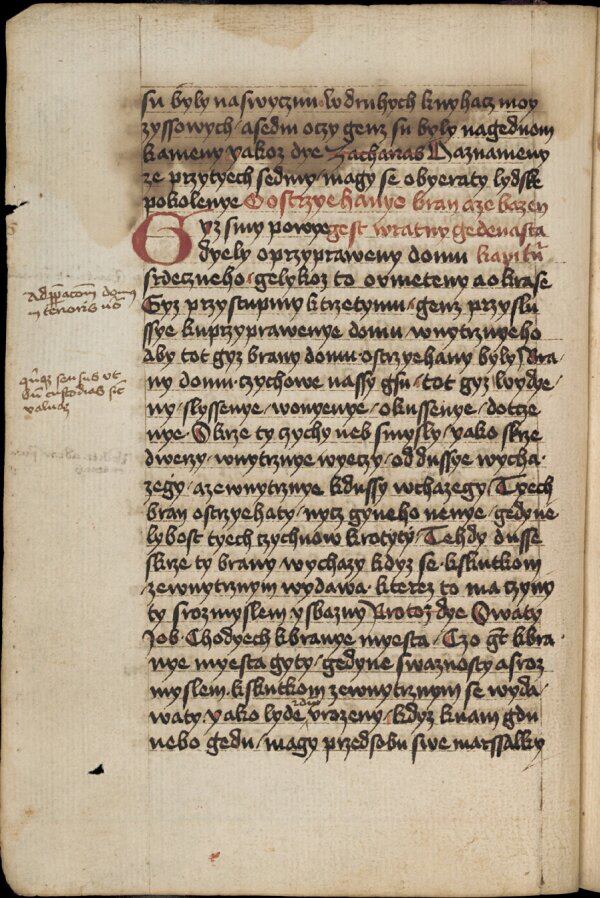 su byly naswycznu w druhych knyhacz moy
zyssowych / a sedm oczy genz su byly nagednom
kameny yakoz dye Zacharias Naznameny
ze przytyech sedmy / magy se obyeraty lydske
pokolenye O ostrzyehanye bran aze bazen
Gyz smy powye gest wratny gedenasta
dyely o przyprawenye domu kapitu
srdeczneho / gelykoz to o vmeteny a okrase
Gyz przystupmy k trzetymu / genz przyslu
ssye kuprzyprawenye domu wnytrznyeho
Aby tot gyz brany domu ostrzyehany byly / Bra
ny domu czychowe nassy gsu / tot gyz / wydye
ny / slyssenye / wonyenye / okussenye / dotcze
nye / Skrze ty czychy neb smysly / yako skrze
dwerzy / wnytrznye wyeczy / od dussye wycha
zegy / a zewnytrznye k dussy wchazegy / Tyech
bran ostrzyehaty / nycz gyneho nenye / gedyne
lybost tyech czychuow krotyty / Tehdy dusse
skrze ty brany wychazy kdyz se k skutkom
zewnytrznym wydawa / kterez to ma czyny
ty s rozmyslem y s bazny Protoz dye Swaty
Job / Chodyech k branye myesta / Czo gest k bra
nye myesta gyty / gedyne s waznosty a s roz
myslem k skutkom zewnytrznym se wyda
waty / yako lyde vrozeny / kdyz k nam gdu
nebo gedu / magy przed sobu swe marssalky
domum
interioris
sensus ut
custodias
valvas